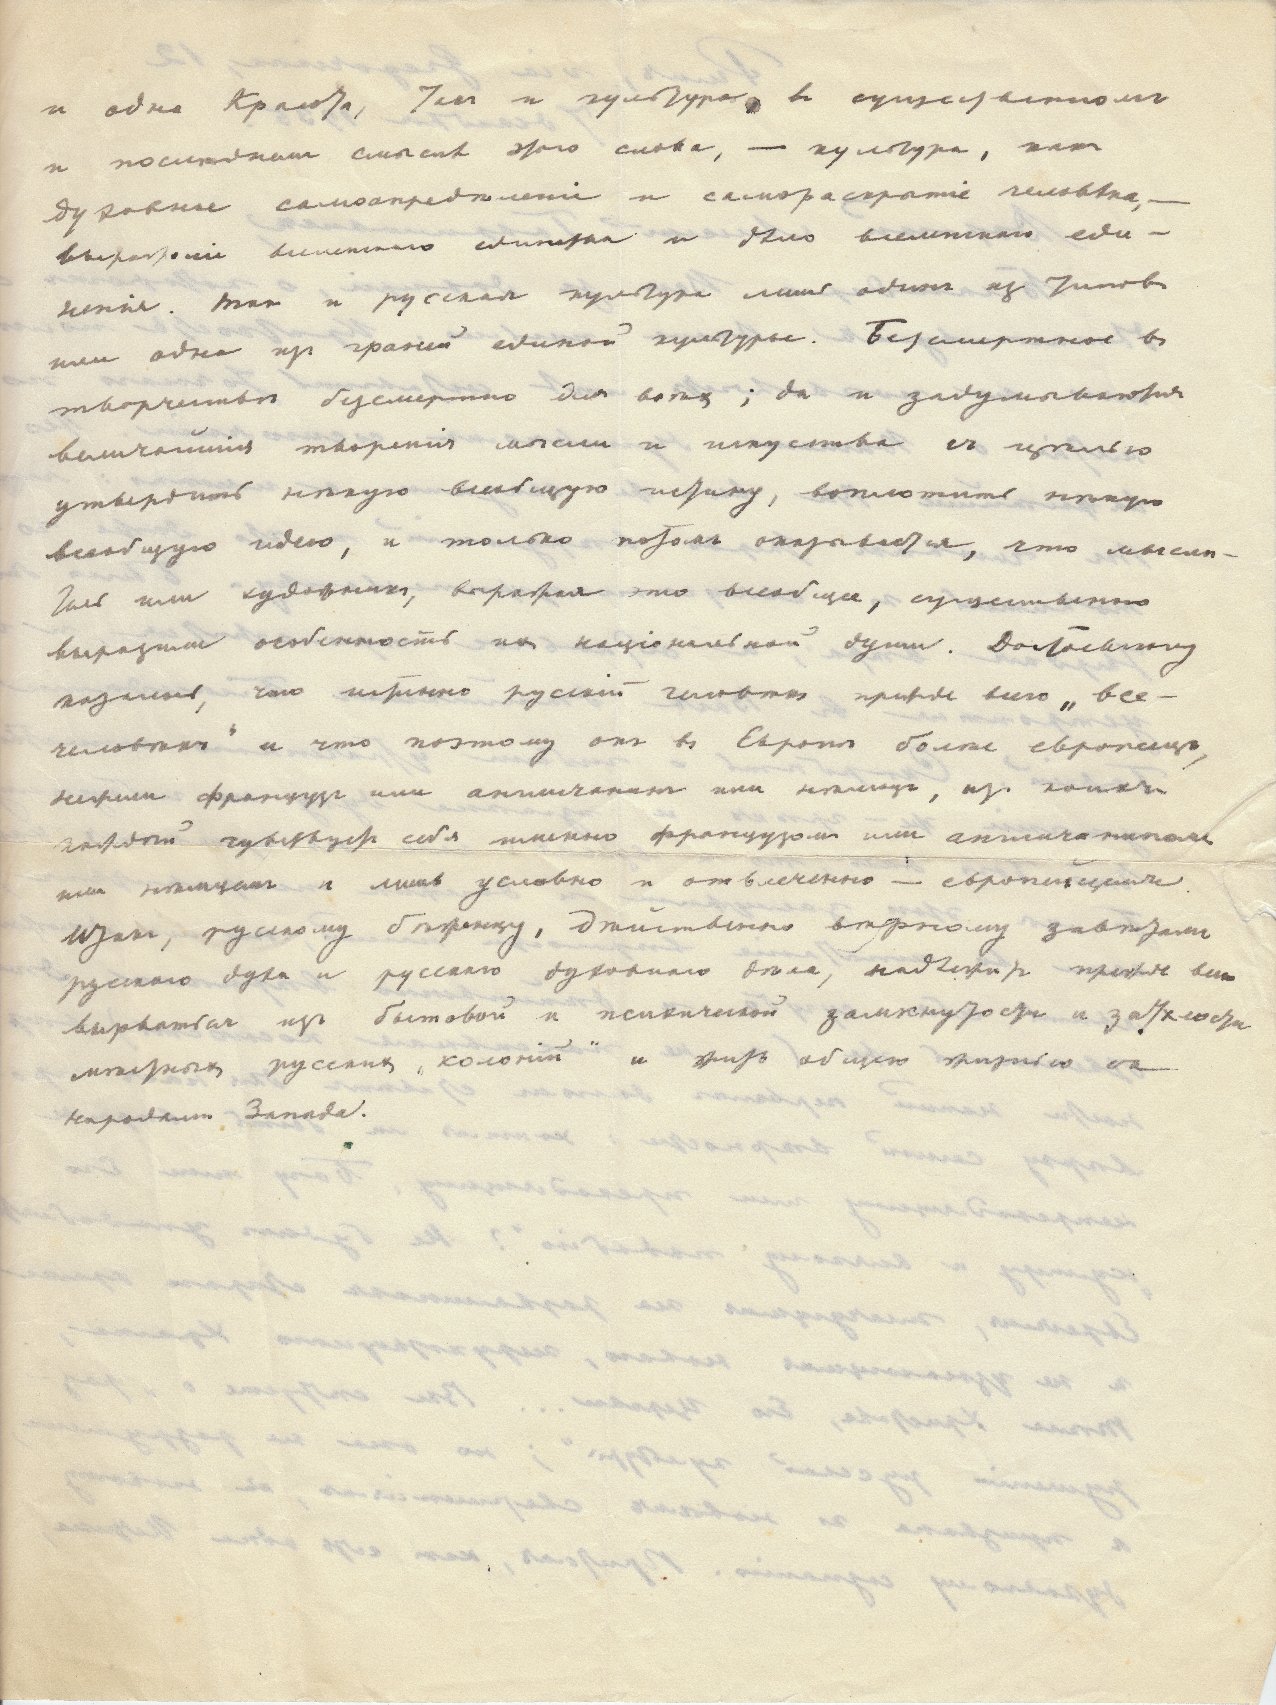 и одна Красота, такъ и культура, въ существенномъ
и послѣднемъ смыслѣ этого слова, — культура, какъ
духовное самоопредѣленіе и самораскрытіе человѣка, —
выраженіе вселенскаго единства и дѣло вселенскаго еди-
ненія. Такъ и русская культура лишь одинъ из типовъ
или одна изъ граней единой культуры. Безсмертное въ
творчествѣ безсмертно для всѣхъ; да и задумываются
величайшія творенія мысли и искусства съ цѣлью
утвердить нѣкую всеобщую истину, воплотить нѣкую
всеобщую идею, и только потомъ оказывается, что мысли-
тель или художникъ, выражая это всеобщее, существенно
выразили особенность ихъ національной души. Достоевскому
казалось, что истинно русскій человѣкъ прежде всего „все-
человѣкъ" и что поэтому онъ въ Европѣ болѣе европеецъ,
нежели французъ или англичанинъ или нѣмецъ, изъ коихъ
каждый чувствуетъ себя именно французомъ или англичаниномъ
или нѣмцемъ и лишь условно и отвлеченно — европейцемъ.
Итакъ, русскому бѣженцу, дѣйственно вѣрному завѣтамъ
русскаго духа и русскаго духовнаго дѣла, надлежитъ прежде всего
вырваться изъ бытовой и психической замкнутости и затхлости
мѣстныхъ русскихъ „колоній" и жить общею жизнью съ
народами Запада.